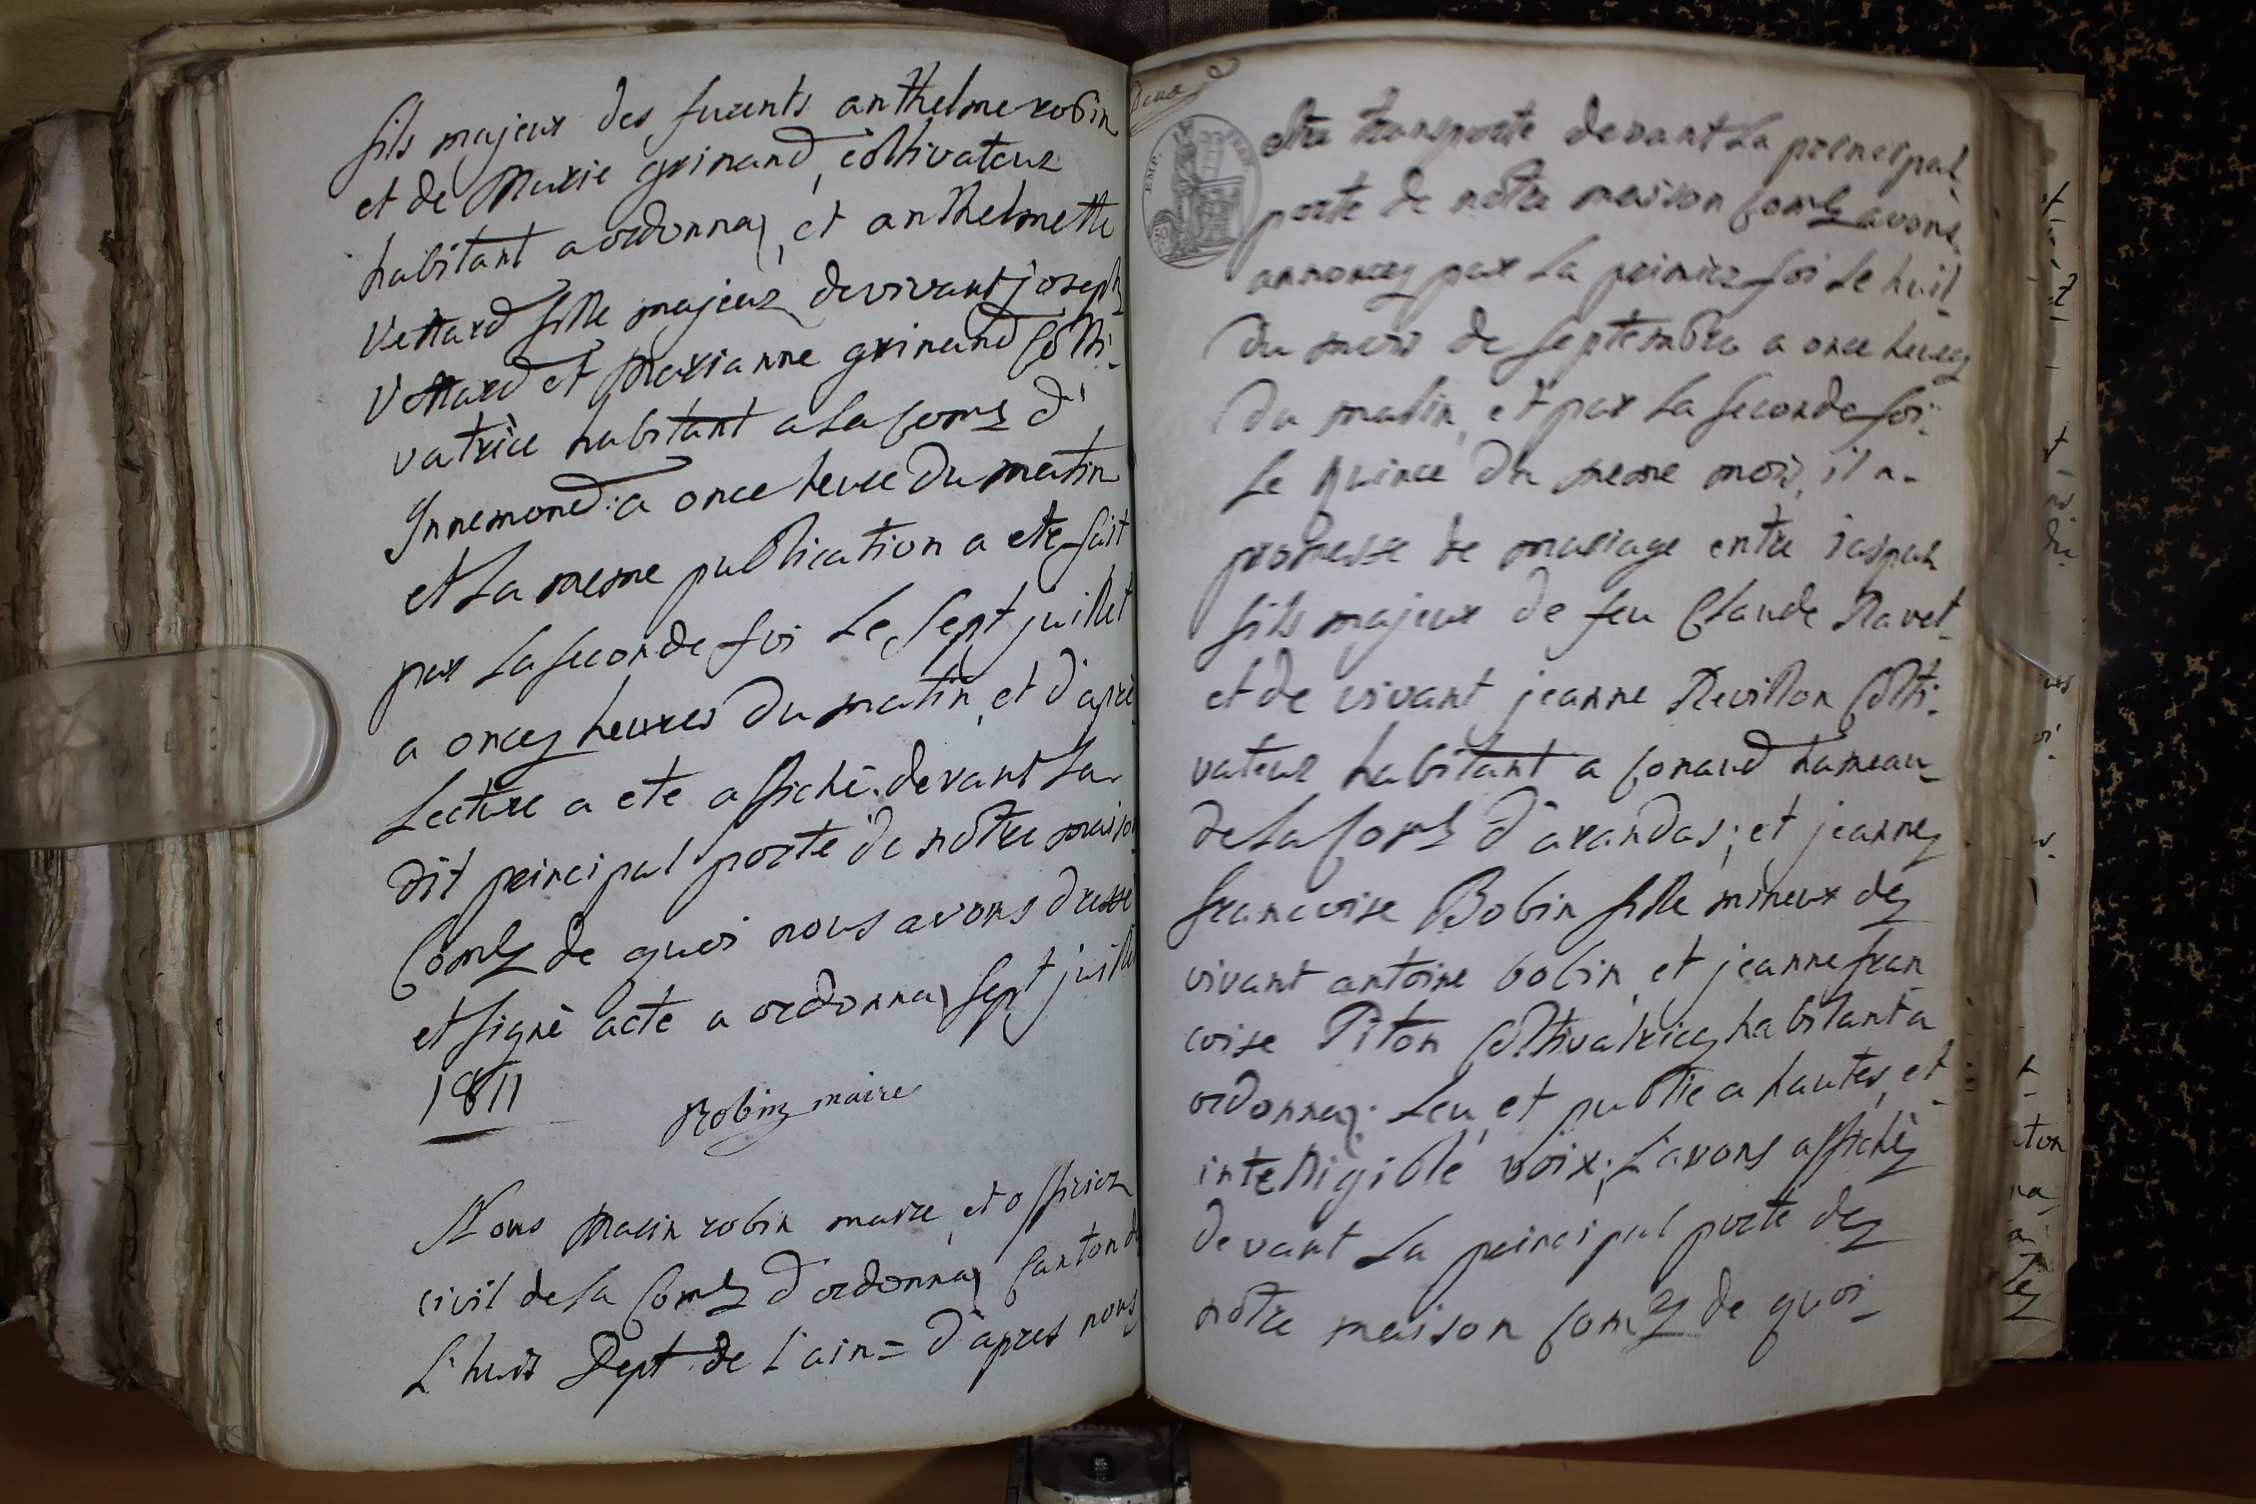 fils majeur des furents anthelme robin
et de Marie grinand, coltivateur
habitant a ordonnaz et anthelmette
Vettard fille majeur de vivant joseph
Vettard et Marianne grinand Colti-
vatrice habitant a la Comz d'
Innemond a once heure du matin
et la mesme publication a ete fait
par la seconde foi le sept juillet
a oncez heures du matin, et d'apré
Lecture a ete affiché devant la
dit principal porte de notre maison
Comz de quoi nous avons dressé
et signé acte a ordonnaz sept juillet
1811
Robin maire
Nous Marin robin maire, et officier
civil de la Comz d'ordonnaz Canton de
L'huis Dept de L'ain = d'apres nous
Deux
EMP.
etre transporte devant la principal
porte de notre maison Comz avons
annoncez par la primier foi le huit
du mois de septembre a once heurez
du matin, et par la seconde foi
le quince du mesme mois, il a
promesse de mariage entre jaspar
fils majeur de feu Claude Ravet
et de vivant jeanne Revillon Colti-
vateur habitant a Conand hameau
de la Comz d'arandas; et jeannez
francoise Bobin fille mineur dez
vivant antoine bobin, et jeanne fran
coise Piton Coltivatricez habitant a
ordonnaz. Leu, et publié a hautes, et
intelligible voix; L'avons affichéz
devant la principal porte dez
notre maison Comz de quoi